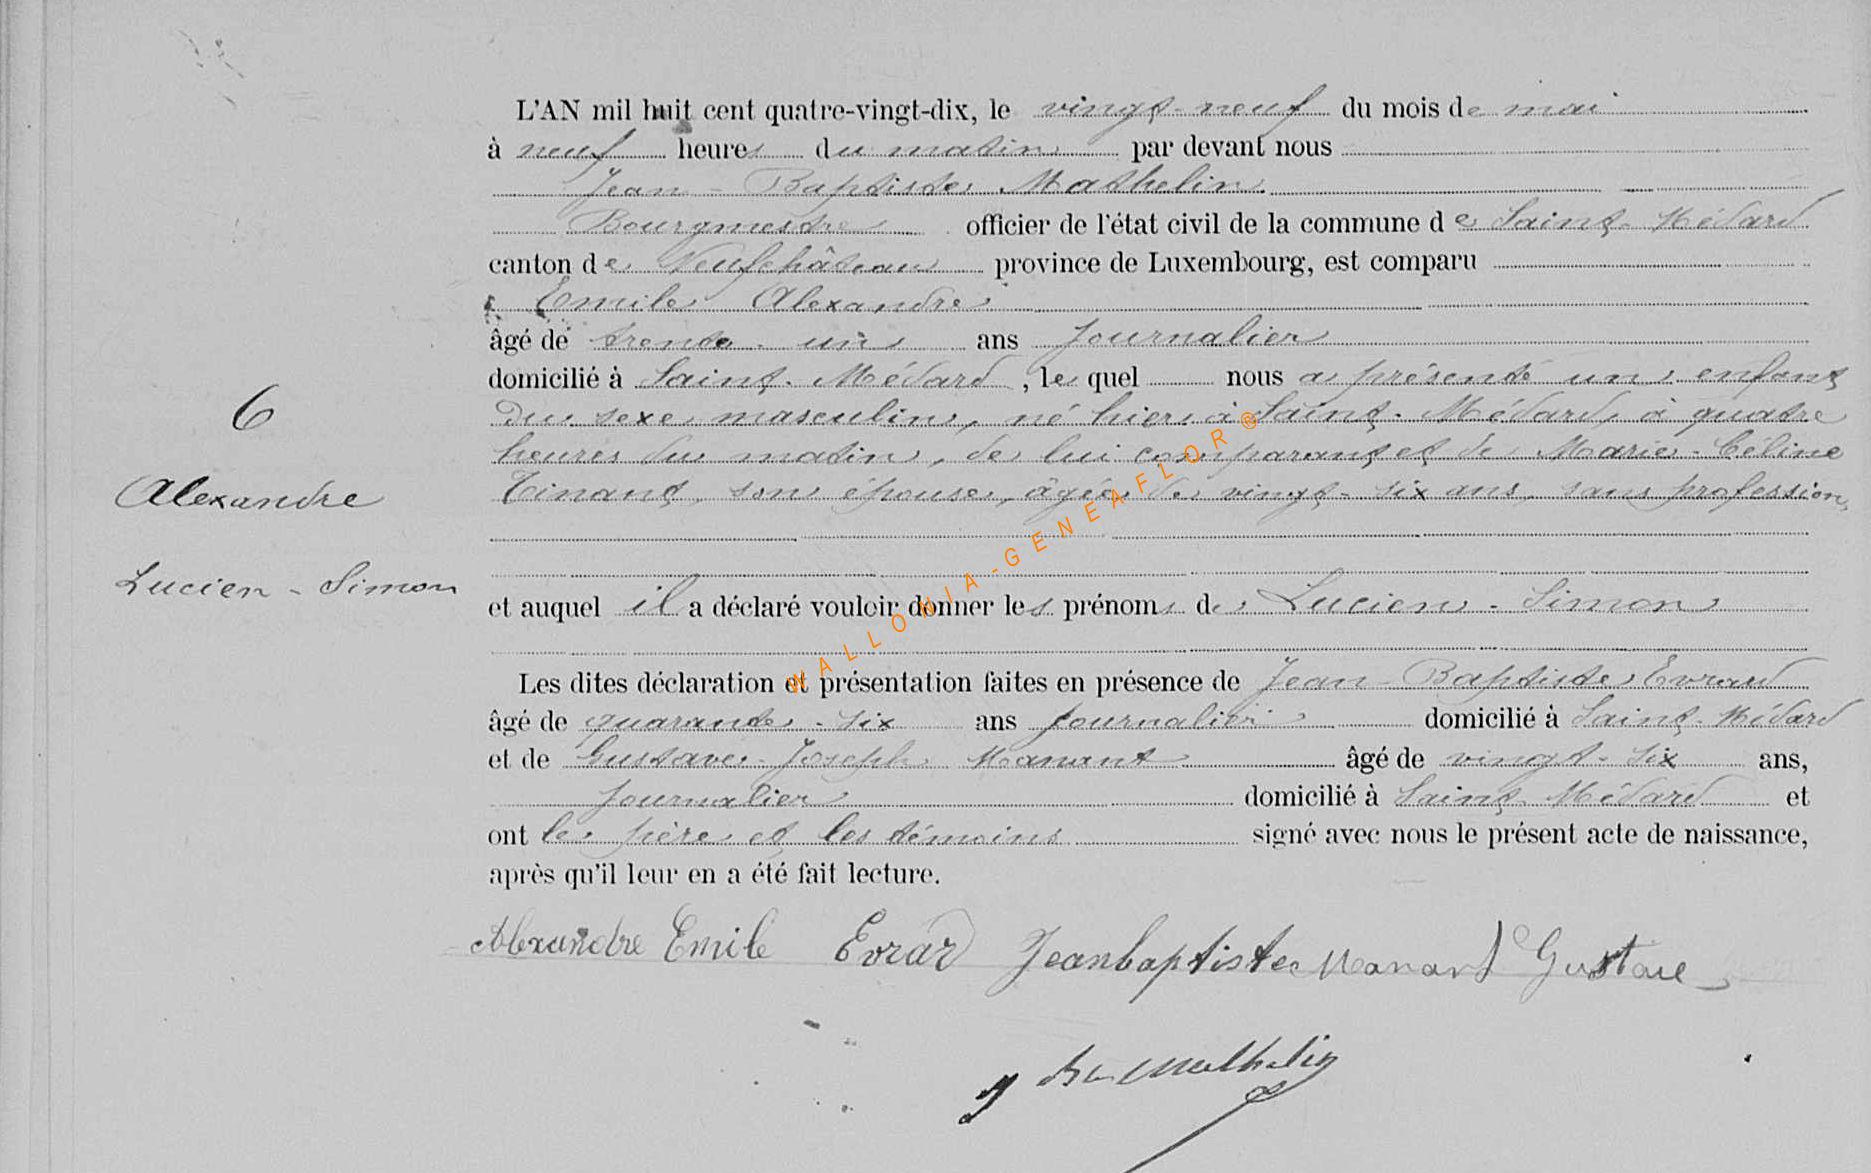 L'AN mil huit cent quatre-vingt-dix, le vingt-neuf du mois de mai
à neuf heures du matin par devant nous
Jean-Baptiste Mathelin
Bourgmestre officier de l'état civil de la commune de Saint-Médard
canton de Neufchâteau province de Luxembourg, est comparu
Emile Alexandre
âgé de trente-un ans journalier
domicilié à Saint-Médard, lequel nous a présenté un enfant
du sexe masculin, né hier à Saint-Médard, à quatre
heures du matin, de lui comparant et de Marie-Céline
Tinant, son épouse, âgée de vingt-six ans, sans profession,
6
Alexandre
Lucien-Simon
et auquel il a déclaré vouloir donner les prénoms de Lucien-Simon
Les dites déclaration et présentation faites en présence de Jean-Baptiste Evrard
âgé de quarante-six ans journalier domicilié à Saint-Médard
et de Gustave-Joseph Manant âgé de vingt-six ans,
journalier domicilié à Saint-Médard et
ont le père et les témoins signé avec nous le présent acte de naissance,
après qu'il leur en a été fait lecture.
Alexandre Emile Evrard Jeanbaptiste Manant Gustave
J Bte Mathelin
WALLONIA-GENEAFLOR®